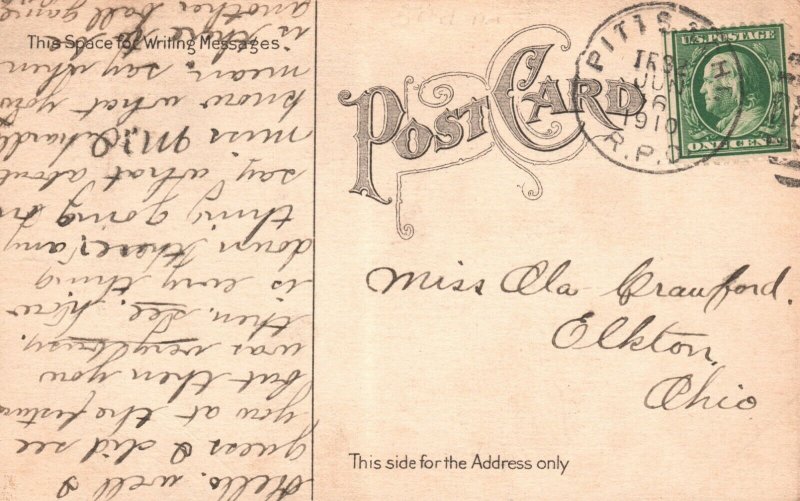 This Space for Writing Messages
POST CARD
PITTS
JUN
6
1910
R.P.O.
U.S. POSTAGE
ONE CENT
Miss Ola Crawford.
Elkton,
Ohio
This side for the Address only
Hello. well I
guess I did see
you at the festure
but then you
was very busy.
then. see. how
is evry thing
down there; any
thing going on
say what about
miss
know what you
mean, say when
is there to be
another ball game